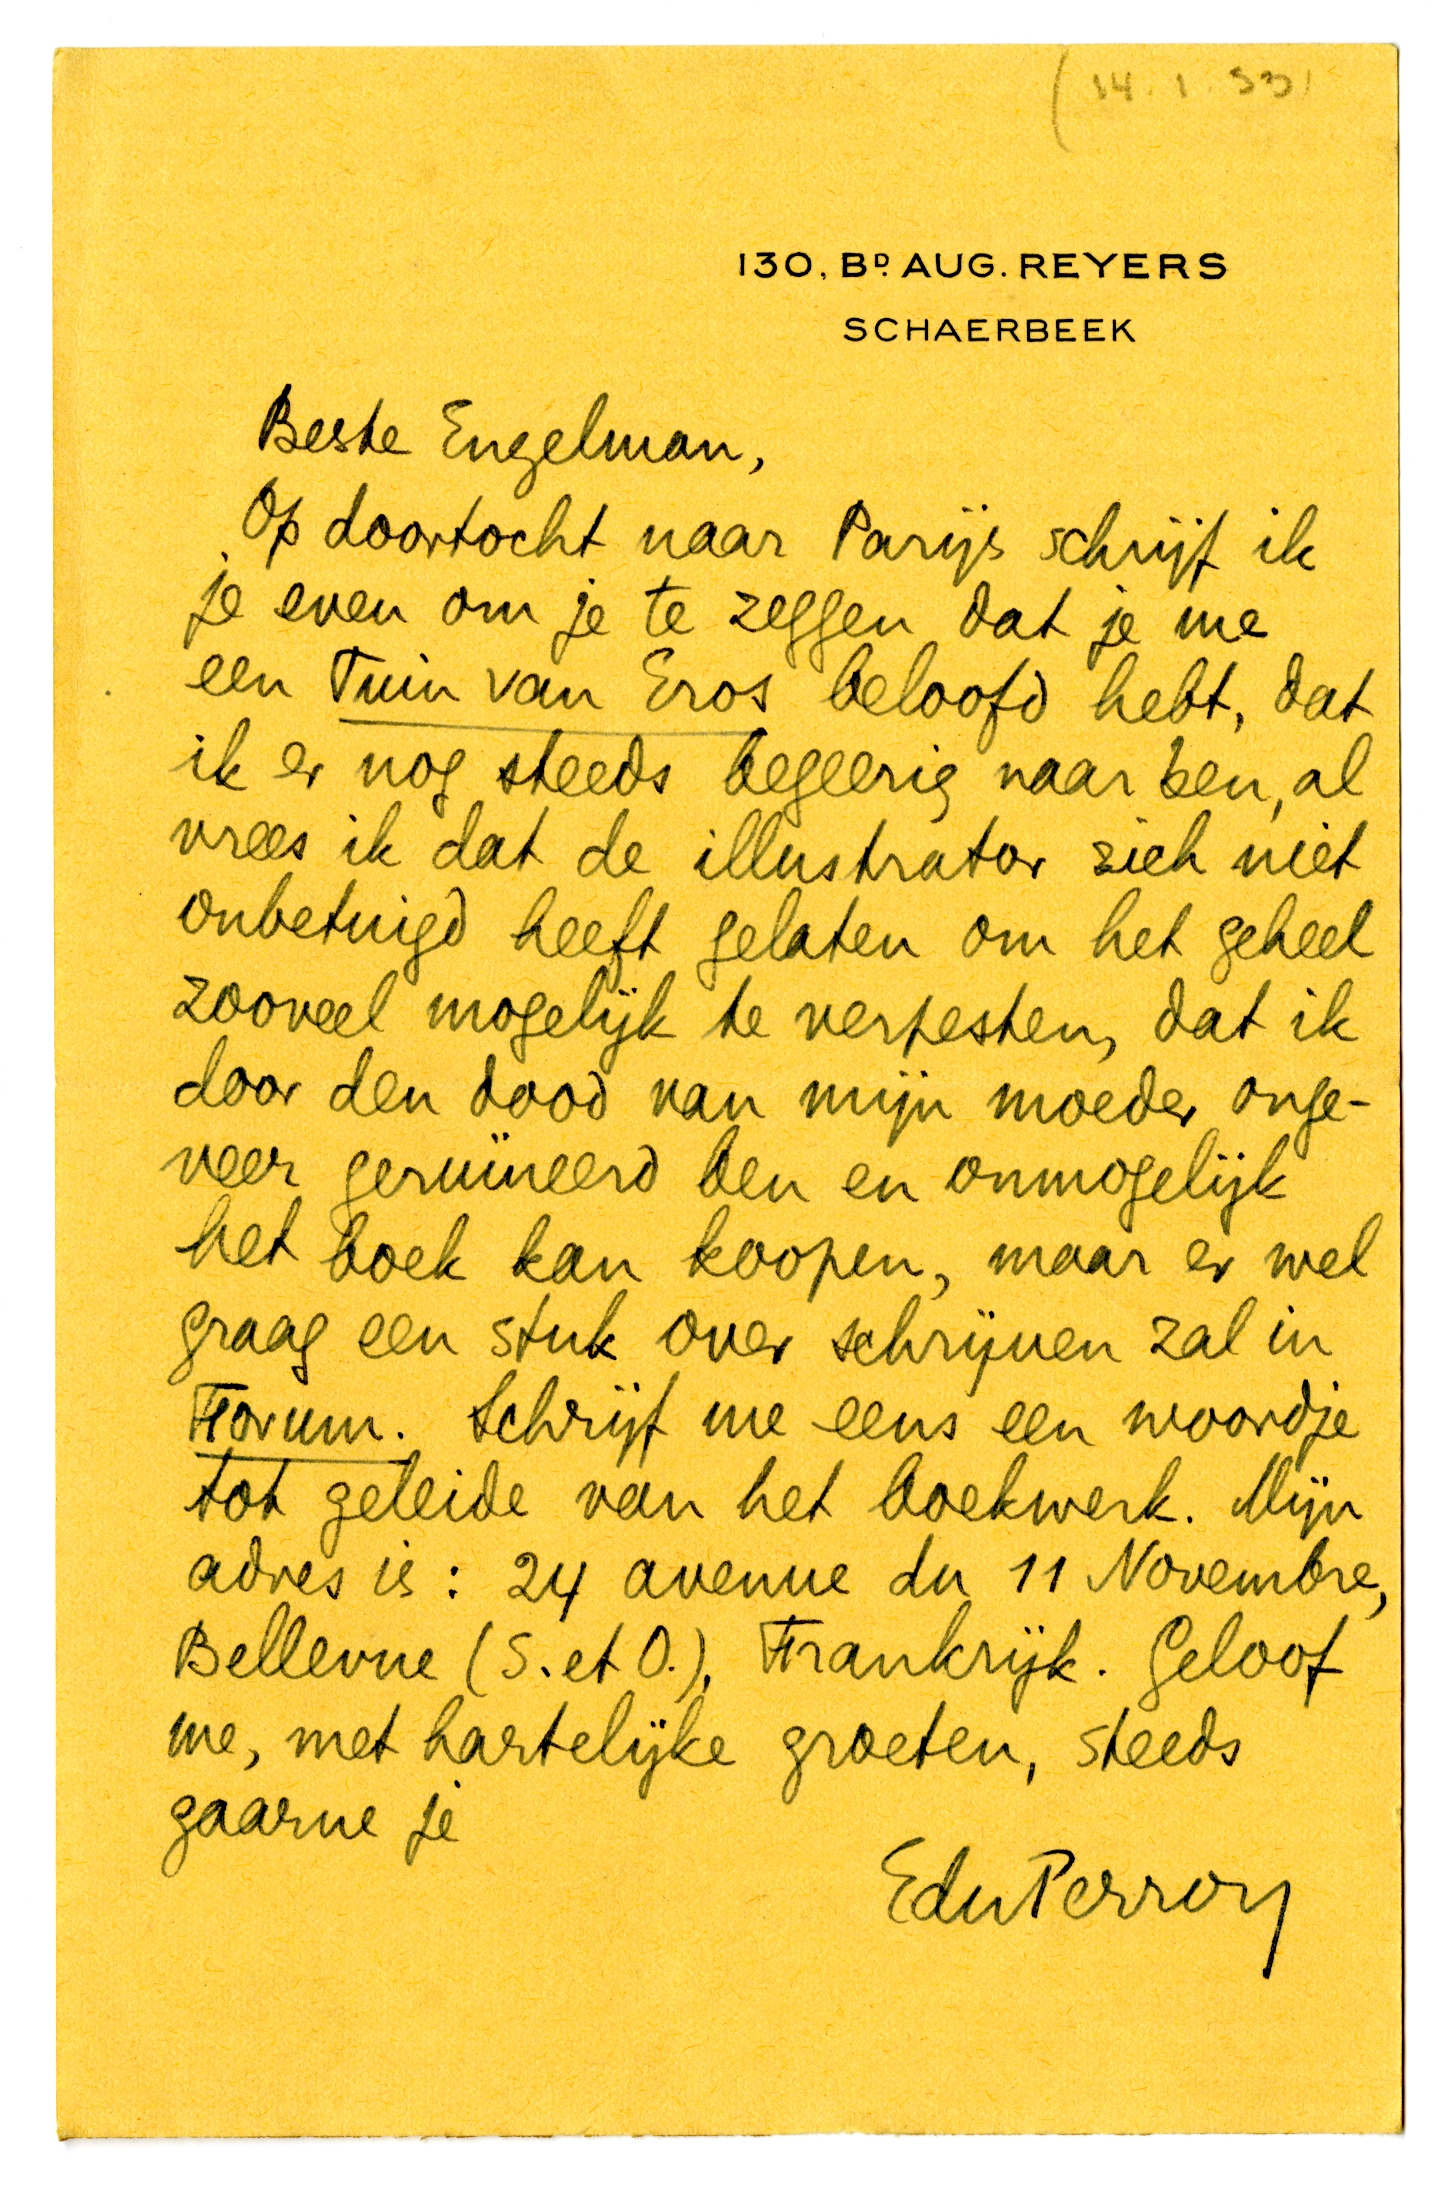 (14.1.33)
130, BD. AUG. REYERS
SCHAERBEEK
Beste Engelman,
Op doortocht naar Parijs schrijf ik
je even om je te zeggen dat je me
een Tuin van Eros beloofd hebt, dat
ik er nog steeds begeerig naar ben, al
vrees ik dat de illustrator zich niet
onbetuigd heeft gelaten om het geheel
zooveel mogelijk te verpesten, dat ik
door den dood van mijn moeder onge-
veer geruïneerd ben en onmogelijk
het boek kan koopen, maar er wel
graag een stuk over schrijven zal in
Forum. Schrijf me eens een woordje
tot geleide van het boekwerk. Mijn
adres is: 24 avenue du 11 Novembre,
Bellevue (S. et O.), Frankrijk. Geloof
me, met hartelijke groeten, steeds
gaarne je
EduPerron